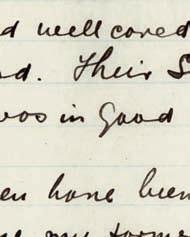 d well cared
d. Their S
was in Good
en have been